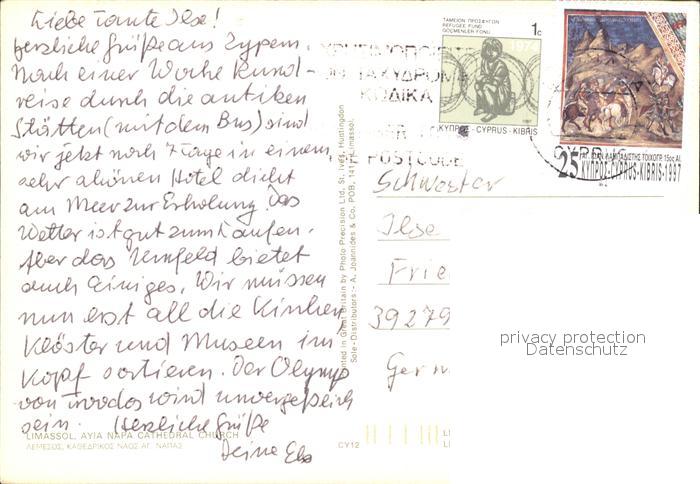 Liebe Tante Ilse!
herzliche Grüße aus Zypern.
Nach einer Woche Rund-
reise durch die antiken
Stätten (mit dem Bus) sind
wir jetzt noch 7 Tage in einem
sehr schönen Hotel dicht
am Meer zur Erholung. Das
Wetter ist gut zum Laufen.
Aber das Umfeld bietet
auch einiges. Wir müssen
nun erst all die Kirchen,
Klöster und Museen im
Kopf sortieren. Der Olymp
von Troodos wird unvergeßlich
sein. Herzliche Grüße
Deine
LIMASSOL, AYIA NAPA CATHEDRAL CHURCH
ΛΕΜΕΣΟΣ, ΚΑΘΕΔΡΙΚΟΣ ΝΑΟΣ ΑΓ. ΝΑΠΑΣ
CY12
Printed in Great Britain by Photo Precision Ltd., St. Ives, Huntingdon
Sole-Distributors:- A. Joannides & Co. POB, 141, Limassol.
ΤΑΜΕΙΟΝ ΠΡΟΣΦΥΓΩΝ
REFUGEE FUND
GÖÇMENLER FONU
1c
1974
ΚΥΠΡΟΣ-CYPRUS-KIBRIS
ΤΑΧΥΔΡΟΜ
ΚΩΔΙΚΑ
POSTCODE
CYPRUS
25
ΚΥΠΡΟΣ-CYPRUS-KIBRIS-1997
Schwester
Ilse
Frie
39279
Germ
privacy protection
Datenschutz